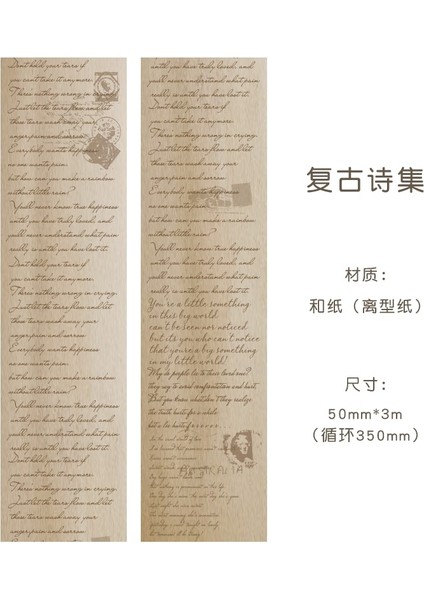 Dont hold your tears if
you cant take it anymore.
Theres nothing wrong in crying.
Just let the tears flow and let
then tears wash away your
anger,pain and sorrow.
Everybody wants happiness
no one wants pain,
but how can you make a rainbow
without little rain?
Youll never known true happiness
until you have truly loved, and
youll never understand what pain
really is until you have lost it.
Dont hold your tears if
you cant take it anymore.
Theres nothing wrong in crying.
Just let the tears flow and let
then tears wash away your
anger,pain and sorrow.
Everybody wants happiness
no one wants pain,
but how can you make a rainbow
without little rain?
Youll never known true happiness
until you have truly loved, and
youll never understand what pain
really is until you have lost it.
Dont hold your tears if
you cant take it anymore.
Theres nothing wrong in crying.
Just let the tears flow and let
then tears wash away your
anger,pain and sorrow.
until you have truly loved, and
youll never understand what pain
really is until you have lost it.
Dont hold your tears if
you cant take it anymore.
Theres nothing wrong in crying.
Just let the tears flow and let
then tears wash away your
anger,pain and sorrow.
Everybody wants happiness
no one wants pain,
but how can you make a rainbow
without little rain?
Youll never known true happiness
until you have truly loved, and
youll never understand what pain
really is until you have lost it.
You're a little something
in this big world
can't be seen nor noticed
but it's you who can't notice
that you're a big something
in my little world!
Why do people lie to their loved ones?
they say to avoid confrontation and hurt.
But you know what,dear? They realize
the truth hurts for a while
but a lie hurts forever.
复古诗集
材质：
和纸（离型纸）
尺寸：
50mm*3m
（循环350mm）